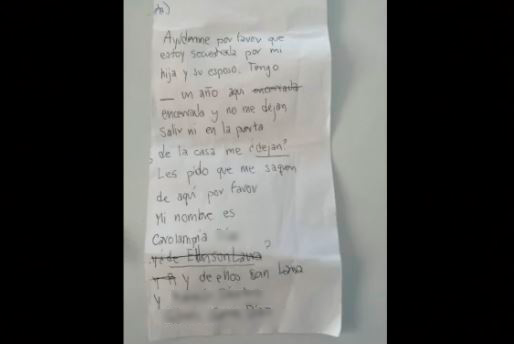 Ayúdenme por favor que
estoy secuestrada por mi
hija y su esposo. Tengo
_ un año aqui encerrada
encerrada y no me dejan
Salir ni en la puerta
de la casa me ¿dejan?
Les pido que me saquen
de aquí por favor
Mi nombre es
Carolampia
?
y de ellos son
y